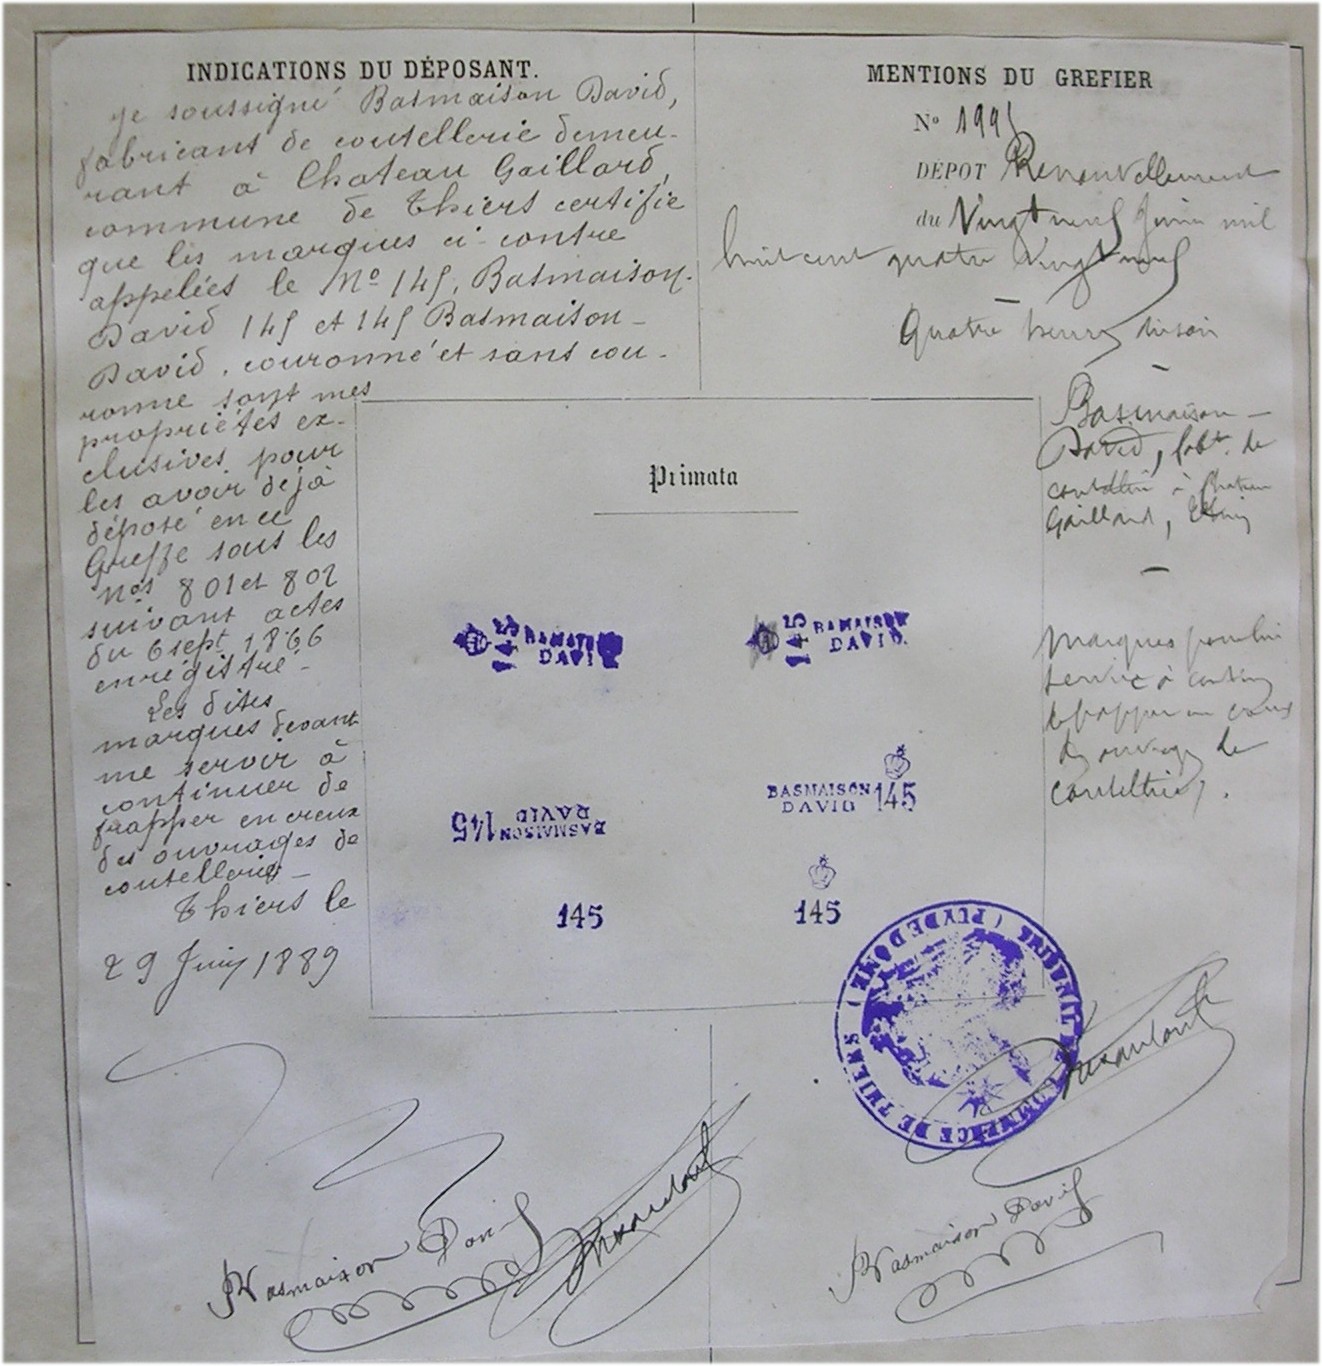 INDICATIONS DU DÉPOSANT.
Je soussigné Basmaison David,
fabricant de coutellerie demeu-
rant à Chateau Gaillard,
commune de Thiers certifie
que les marques ci-contre
appelées le No 145, Basmaison-
David 145 et 145 Basmaison-
David, couronné et sans cou-
ronne sont mes
propriétés ex-
clusives pour
les avoir déjà
déposé en ce
Greffe sous les
Nos 801 et 802
suivant actes
du 6 sept 1866
enrégistré-
Les dites
marques devant
me servir à
continuer de
frapper en creux
des ouvrages de
coutellerie-
Thiers le
29 Juin 1889
MENTIONS DU GREFIER
No 1995
DÉPOT Renouvellement
du Vingt neuf Juin mil
huit cent quatre vingt neuf
Quatre heures du soir
Basmaison-
David, fabt. de
coutellerie à Chateau
Gaillard, Thiers
Marques pour lui
servir à continuer
de frapper en creux
des ouvrages de
coutellerie.
Primata
145 BASMAISON
DAVID
145 BASMAISON
DAVID
BASMAISON
DAVID 145
BASMAISON
DAVID 145
145
145
TRIBUNAL DE COMMERCE DE THIERS (PUY DE DÔME)
Basmaison David
Basmaison David